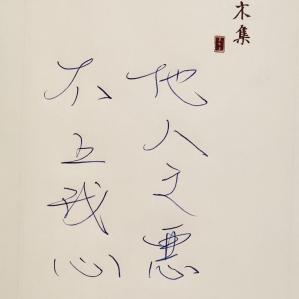 木集
他人之悪
不 我心